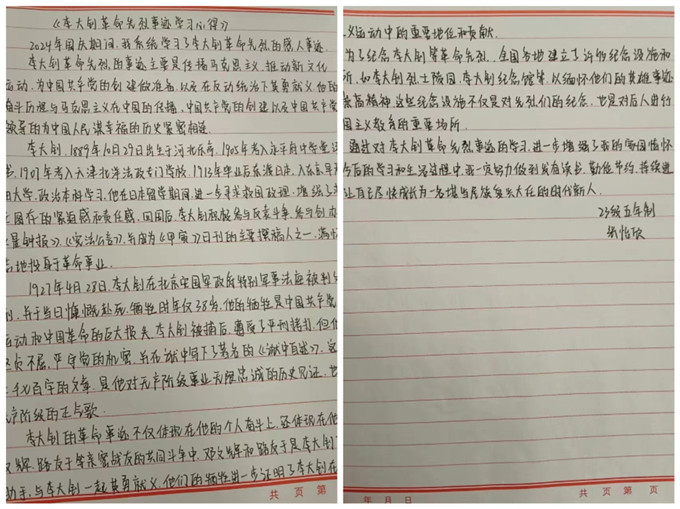 《李大钊革命先烈事迹学习心得》
2024年国庆期间，我系统学习了李大钊革命先烈的感人事迹。
李大钊革命先烈的事迹主要是传播马克思主义、推动新文化
运动，为中国共产党的创建做准备，以及在反动统治下英勇就义。他的
奋斗历程与马克思主义在中国的传播、中国共产党的创建以及中国共产党
领导的为中国人民谋幸福的历史紧密相连。
李大钊，1889年10月29日出生于河北乐亭，1905年考入永平府中学堂
1907年考入天津北洋法政专门学校，1913年毕业后东渡日本，入东京早
田大学，政治本科学习，他在日本留学期间，进一步寻求救国政理，增强了
国存的紧迫感和责任感，回国后，李大钊积极参与反袁斗争，参与创办
《晨钟报》、《宪法公言》，并成为《甲寅》日刊的主要撰稿人之一，满
地投身于革命事业。
1927年4月28日，李大钊在北京安国军政府特别军事法庭被判
刑，并于当日慷慨赴死，牺牲时年仅38岁，他的牺牲是中国共产党
运动和中国革命的巨大损失，李大钊被捕后，遭受了严刑拷打，但他
坚贞不屈，严守党的机密，并在狱中写下了著名的《狱中自述》，
千七百字的文章，是他对无产阶级事业无限忠诚的历史见证，也
产阶级的正气歌。
李大钊的革命事迹不仅体现在他的个人奋斗上，还体现在他
文辉、路友于等亲密战友的共同斗争中，邓文辉和路友于是李大钊
助手，与李大钊一起英勇就义，他们的牺牲进一步证明了李大钊在
共 页 第
义运动中的重要地位和贡献。
为了纪念李大钊等革命先烈，全国各地建立了许多纪念设施和
所，如李大钊烈士陵园、李大钊纪念馆等，以缅怀他们的英雄事迹
精神，这些纪念设施不仅是对先烈们的纪念，也是对后人进行
国主义教育的重要场所。
通过对李大钊革命先烈事迹的学习，进一步增强了我的爱国情怀
今后的学习和生活过程中，我一定努力做到发奋读书，勤俭节约，持续
让自己尽快成长为一名堪当民族复兴大任的时代新人。
23级五年制
张怡欣
年 月 日
共 页 第 页